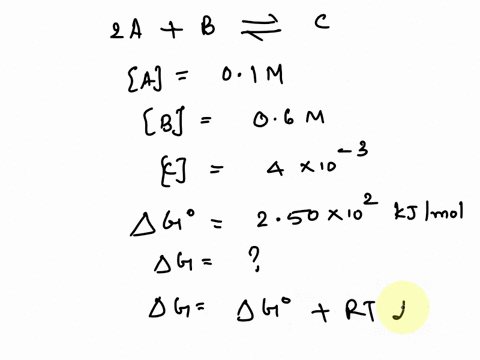 2A + B ⇌ C
[A] = 0.1 M
[B] = 0.6 M
[C] = 4 × 10⁻³
ΔG° = 2.50 × 10² kJ/mol
ΔG = ?
ΔG = ΔG° + RT